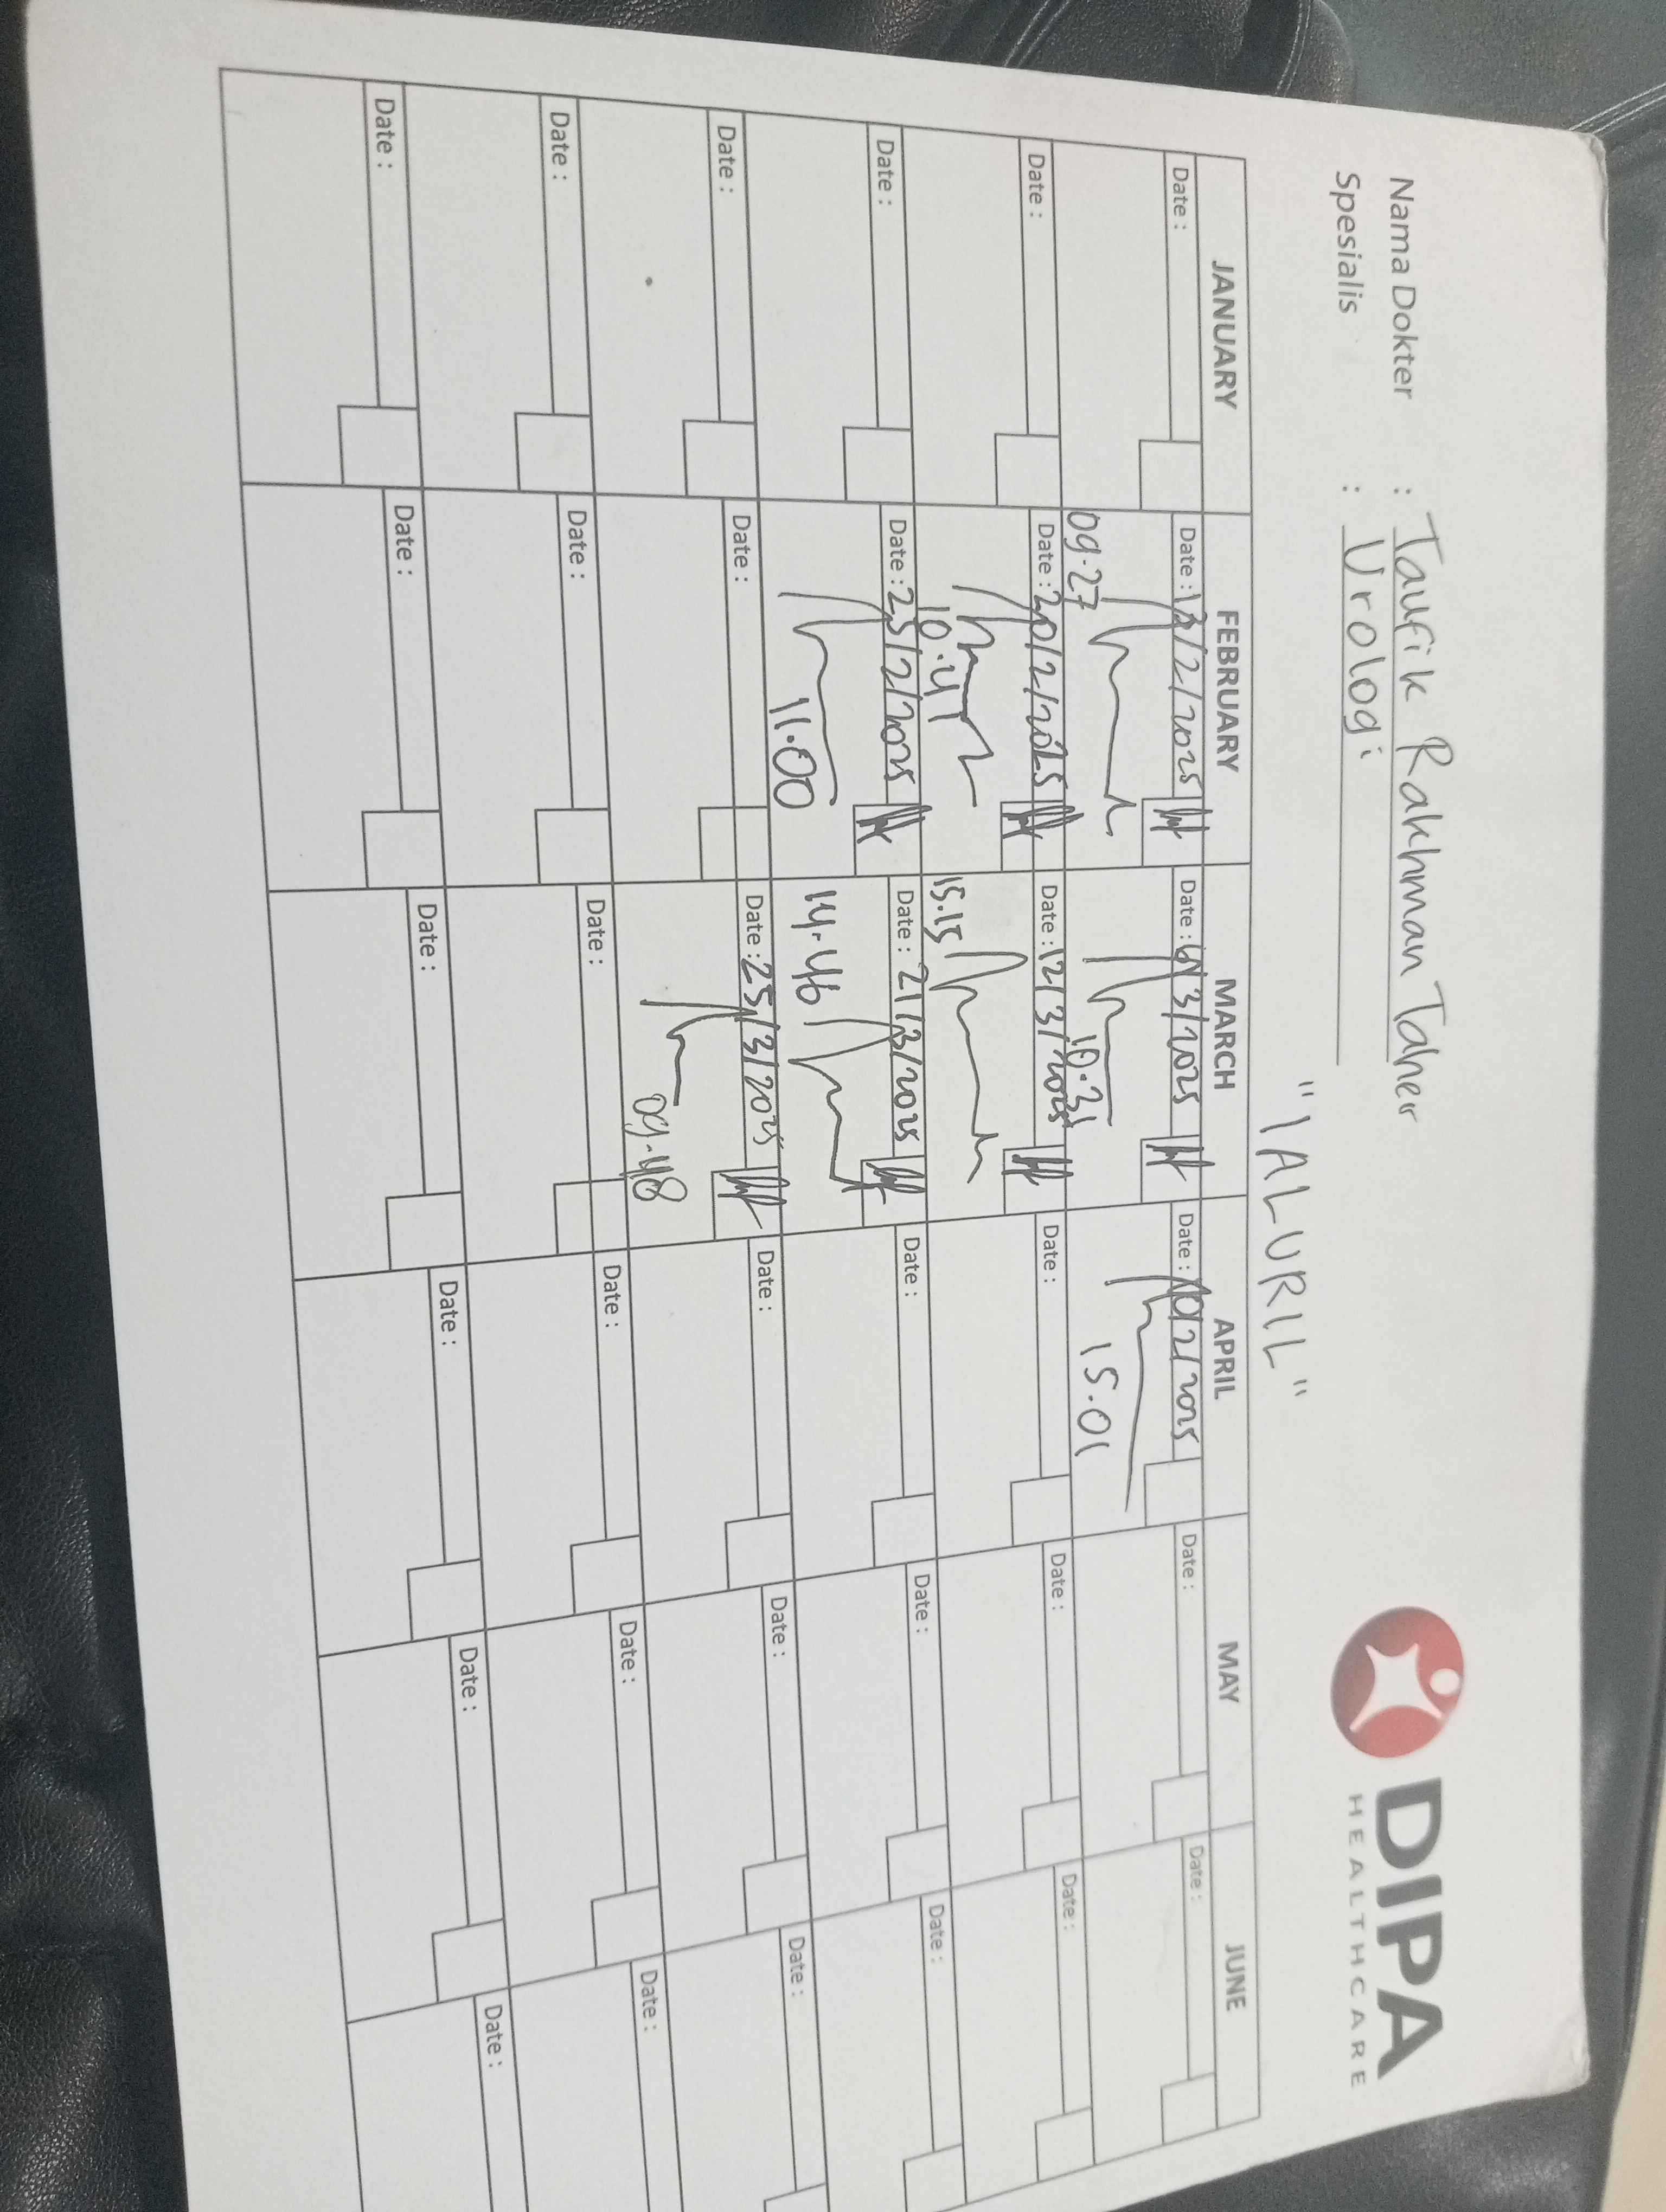 Nama Dokter : Taufik Rakhman Taher
Spesialis : Urologi
DIPA
HEALTHCARE
"IALURIL"
JANUARY FEBRUARY MARCH APRIL MAY JUNE
Date : Date : 13/2/2025 Date : 6/3/2025 Date : 10/2/2025 Date : Date :
09.27 10.31 15.01
Date : Date : 20/2/2025 Date : 12/3/2025 Date : Date : Date :
10.41 15.15
Date : Date : 25/2/2025 Date : 21/3/2025 Date : Date : Date :
11.00 14.46
Date : Date : Date : 25/3/2025 Date : Date : Date :
09.48
Date : Date : Date : Date : Date : Date :
Date : Date : Date : Date : Date : Date :